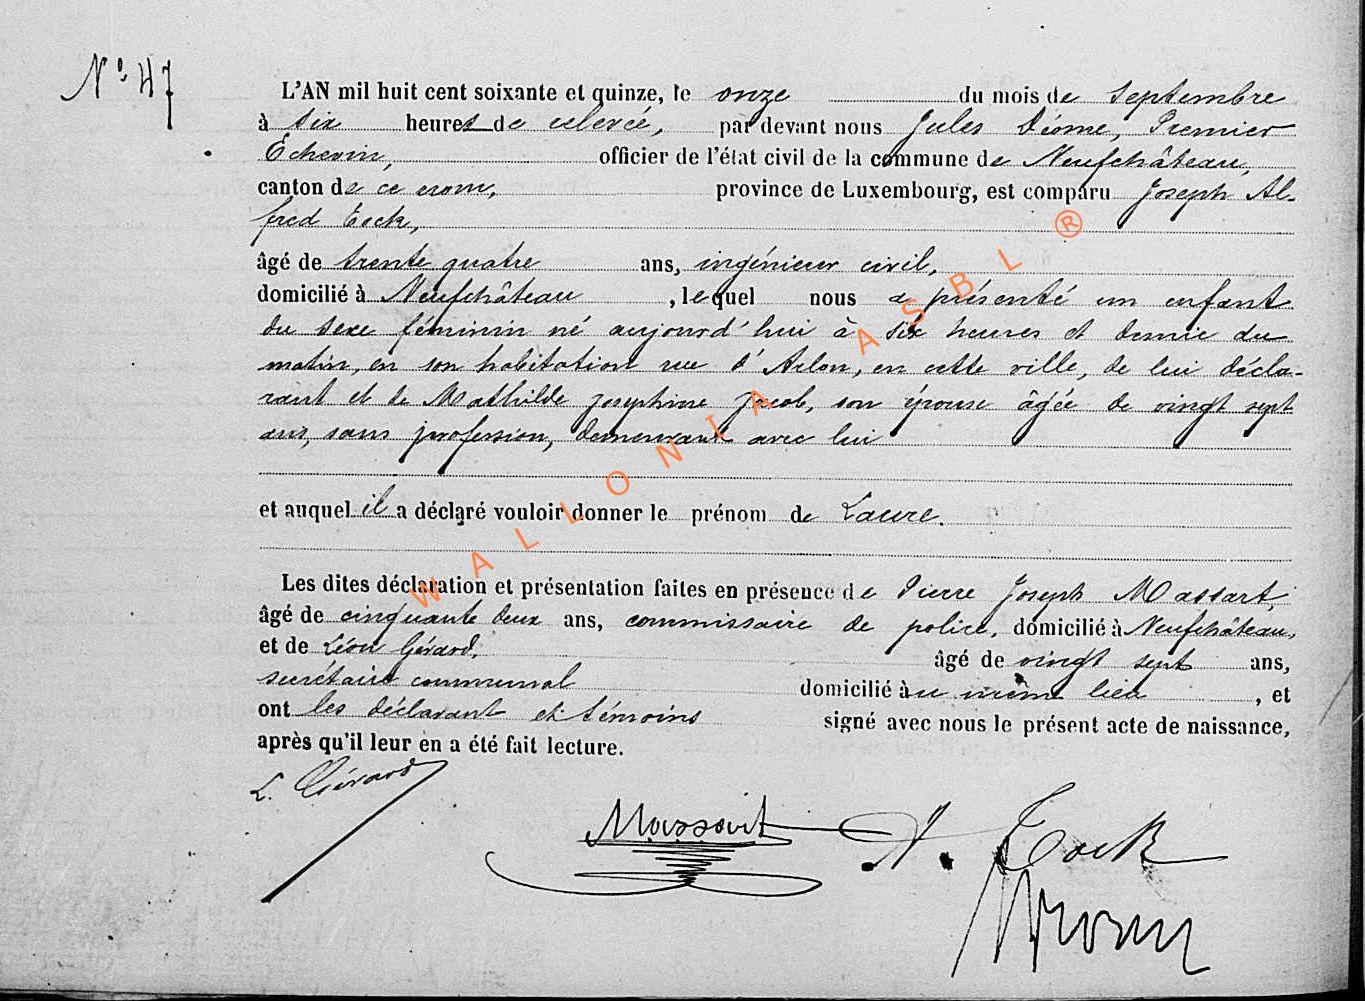 N° 47
L'AN mil huit cent soixante et quinze, le onze du mois de Septembre
à six heures de relevée, par devant nous Jules Diome, Premier
Echevin, officier de l'état civil de la commune de Neufchâteau,
canton de ce nom, province de Luxembourg, est comparu Joseph Al-
fred Tock,
âgé de trente quatre ans, ingénieur civil,
domicilié à Neufchâteau, lequel nous a présenté un enfant
du sexe féminin né aujourd'hui à six heures et demie du
matin, en son habitation rue d'Arlon, en cette ville, de lui décla-
rant et de Mathilde Josephine Jacob, son épouse âgée de vingt sept
ans, sans profession, demeurant avec lui
et auquel il a déclaré vouloir donner le prénom de Laure.
Les dites déclaration et présentation faites en présence de Pierre Joseph Massart,
âgé de cinquante deux ans, commissaire de police, domicilié à Neufchâteau,
et de Léon Gérard, âgé de vingt sept ans,
secrétaire communal domicilié au même lieu, et
ont les déclarant et témoins signé avec nous le présent acte de naissance,
après qu'il leur en a été fait lecture.
L. Gérard
Massart A. Tock
WALLONIA ASBL ®